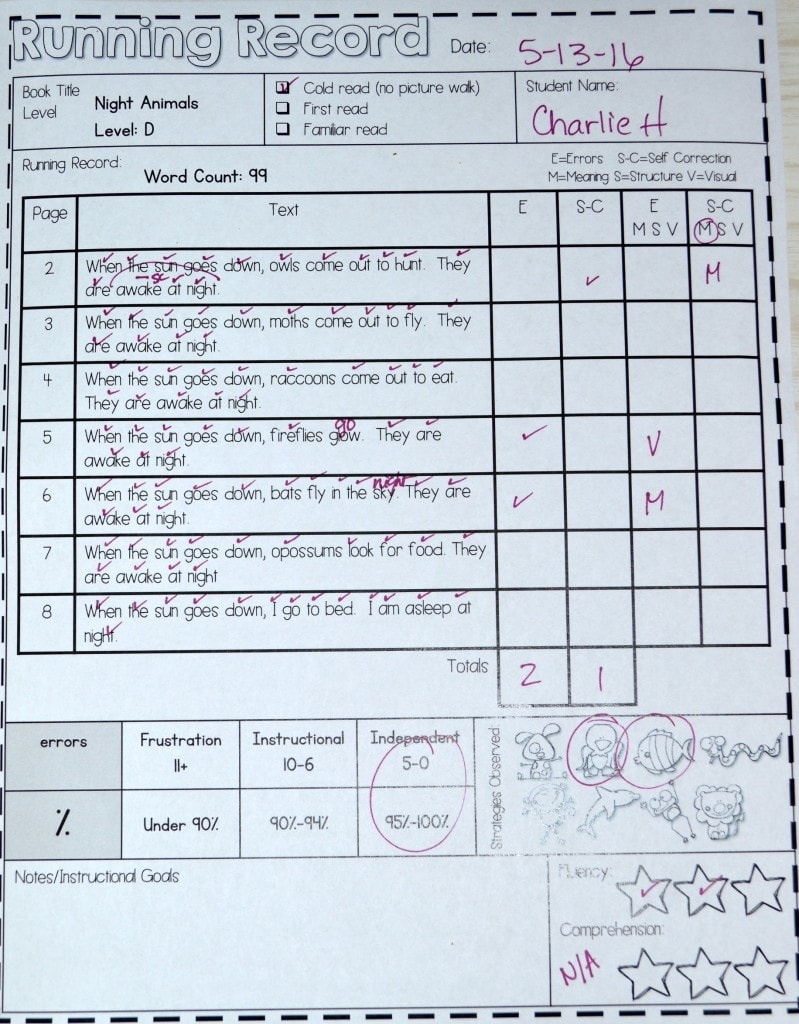 Running Record Date: 5-13-16
Book Title
Level
Night Animals
Level: D
✓ Cold read (no picture walk)
First read
Familiar read
Student Name:
Charlie H
Running Record:
Word Count: 99
E=Errors S-C=Self Correction
M=Meaning S=Structure V=Visual
Page Text E S-C E S-C
M S V M S V
2 When the sun goes down, owls come out to hunt. They ✓ M
sc
are awake at night.
3 When the sun goes down, moths come out to fly. They
are awake at night.
4 When the sun goes down, raccoons come out to eat.
They are awake at night.
go
5 When the sun goes down, fireflies glow. They are ✓ V
awake at night.
night
6 When the sun goes down, bats fly in the sky. They are ✓ M
awake at night.
7 When the sun goes down, opossums look for food. They
are awake at night
8 When the sun goes down, I go to bed. I am asleep at
night.
Totals 2 1
errors Frustration Instructional Independent
11+ 10-6 5-0
% Under 90% 90%-94% 95%-100%
Strategies Observed:
Notes/Instructional Goals
Fluency:
Comprehension:
N/A